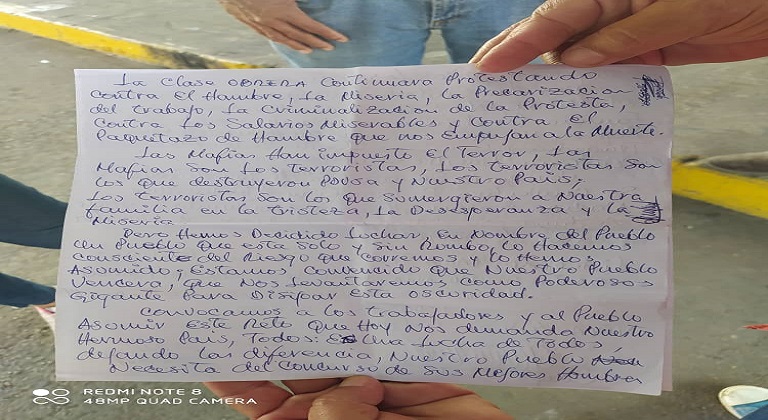 La Clase OBRERA Continuara Protestando
contra El Hambre, La Miseria, la Precarizacion
del trabajo, La Criminalizacion de la Protesta,
Contra Los Salarios Miserables y Contra El
Paquetazo de Hambre que nos Empujan a la Muerte.
Las Mafias Han impuesto El Terror, Las
Mafias son Los Terroristas, Los Terroristas son
los que destruyeron PDVSA y Nuestro Pais;
Los terroristas son los que sumergieron a Nuestra
familia en la tristeza, La Desesperanza y la
Miseria
Pero Hemos Decidido Luchar En Nombre del Pueblo
Un Pueblo que esta solo y sin Rumbo, lo Hacemos
consciente del Riesgo que corremos y lo Hemos
Asumido; Estamos convencido que Nuestro Pueblo
Vencera, que Nos Levantaremos como Poderosos
Gigante Para Disipar Esta oscuridad.
Convocamos a los trabajadores y al Pueblo
Asumir Este Reto que Hoy Nos demanda Nuestro
Hermoso Pais, Todos: Es Una Lucha de Todos,
dejando las diferencia, Nuestro Pueblo
Necesita del Concurso de sus Mejores Hombres
REDMI NOTE 8
48MP QUAD CAMERA